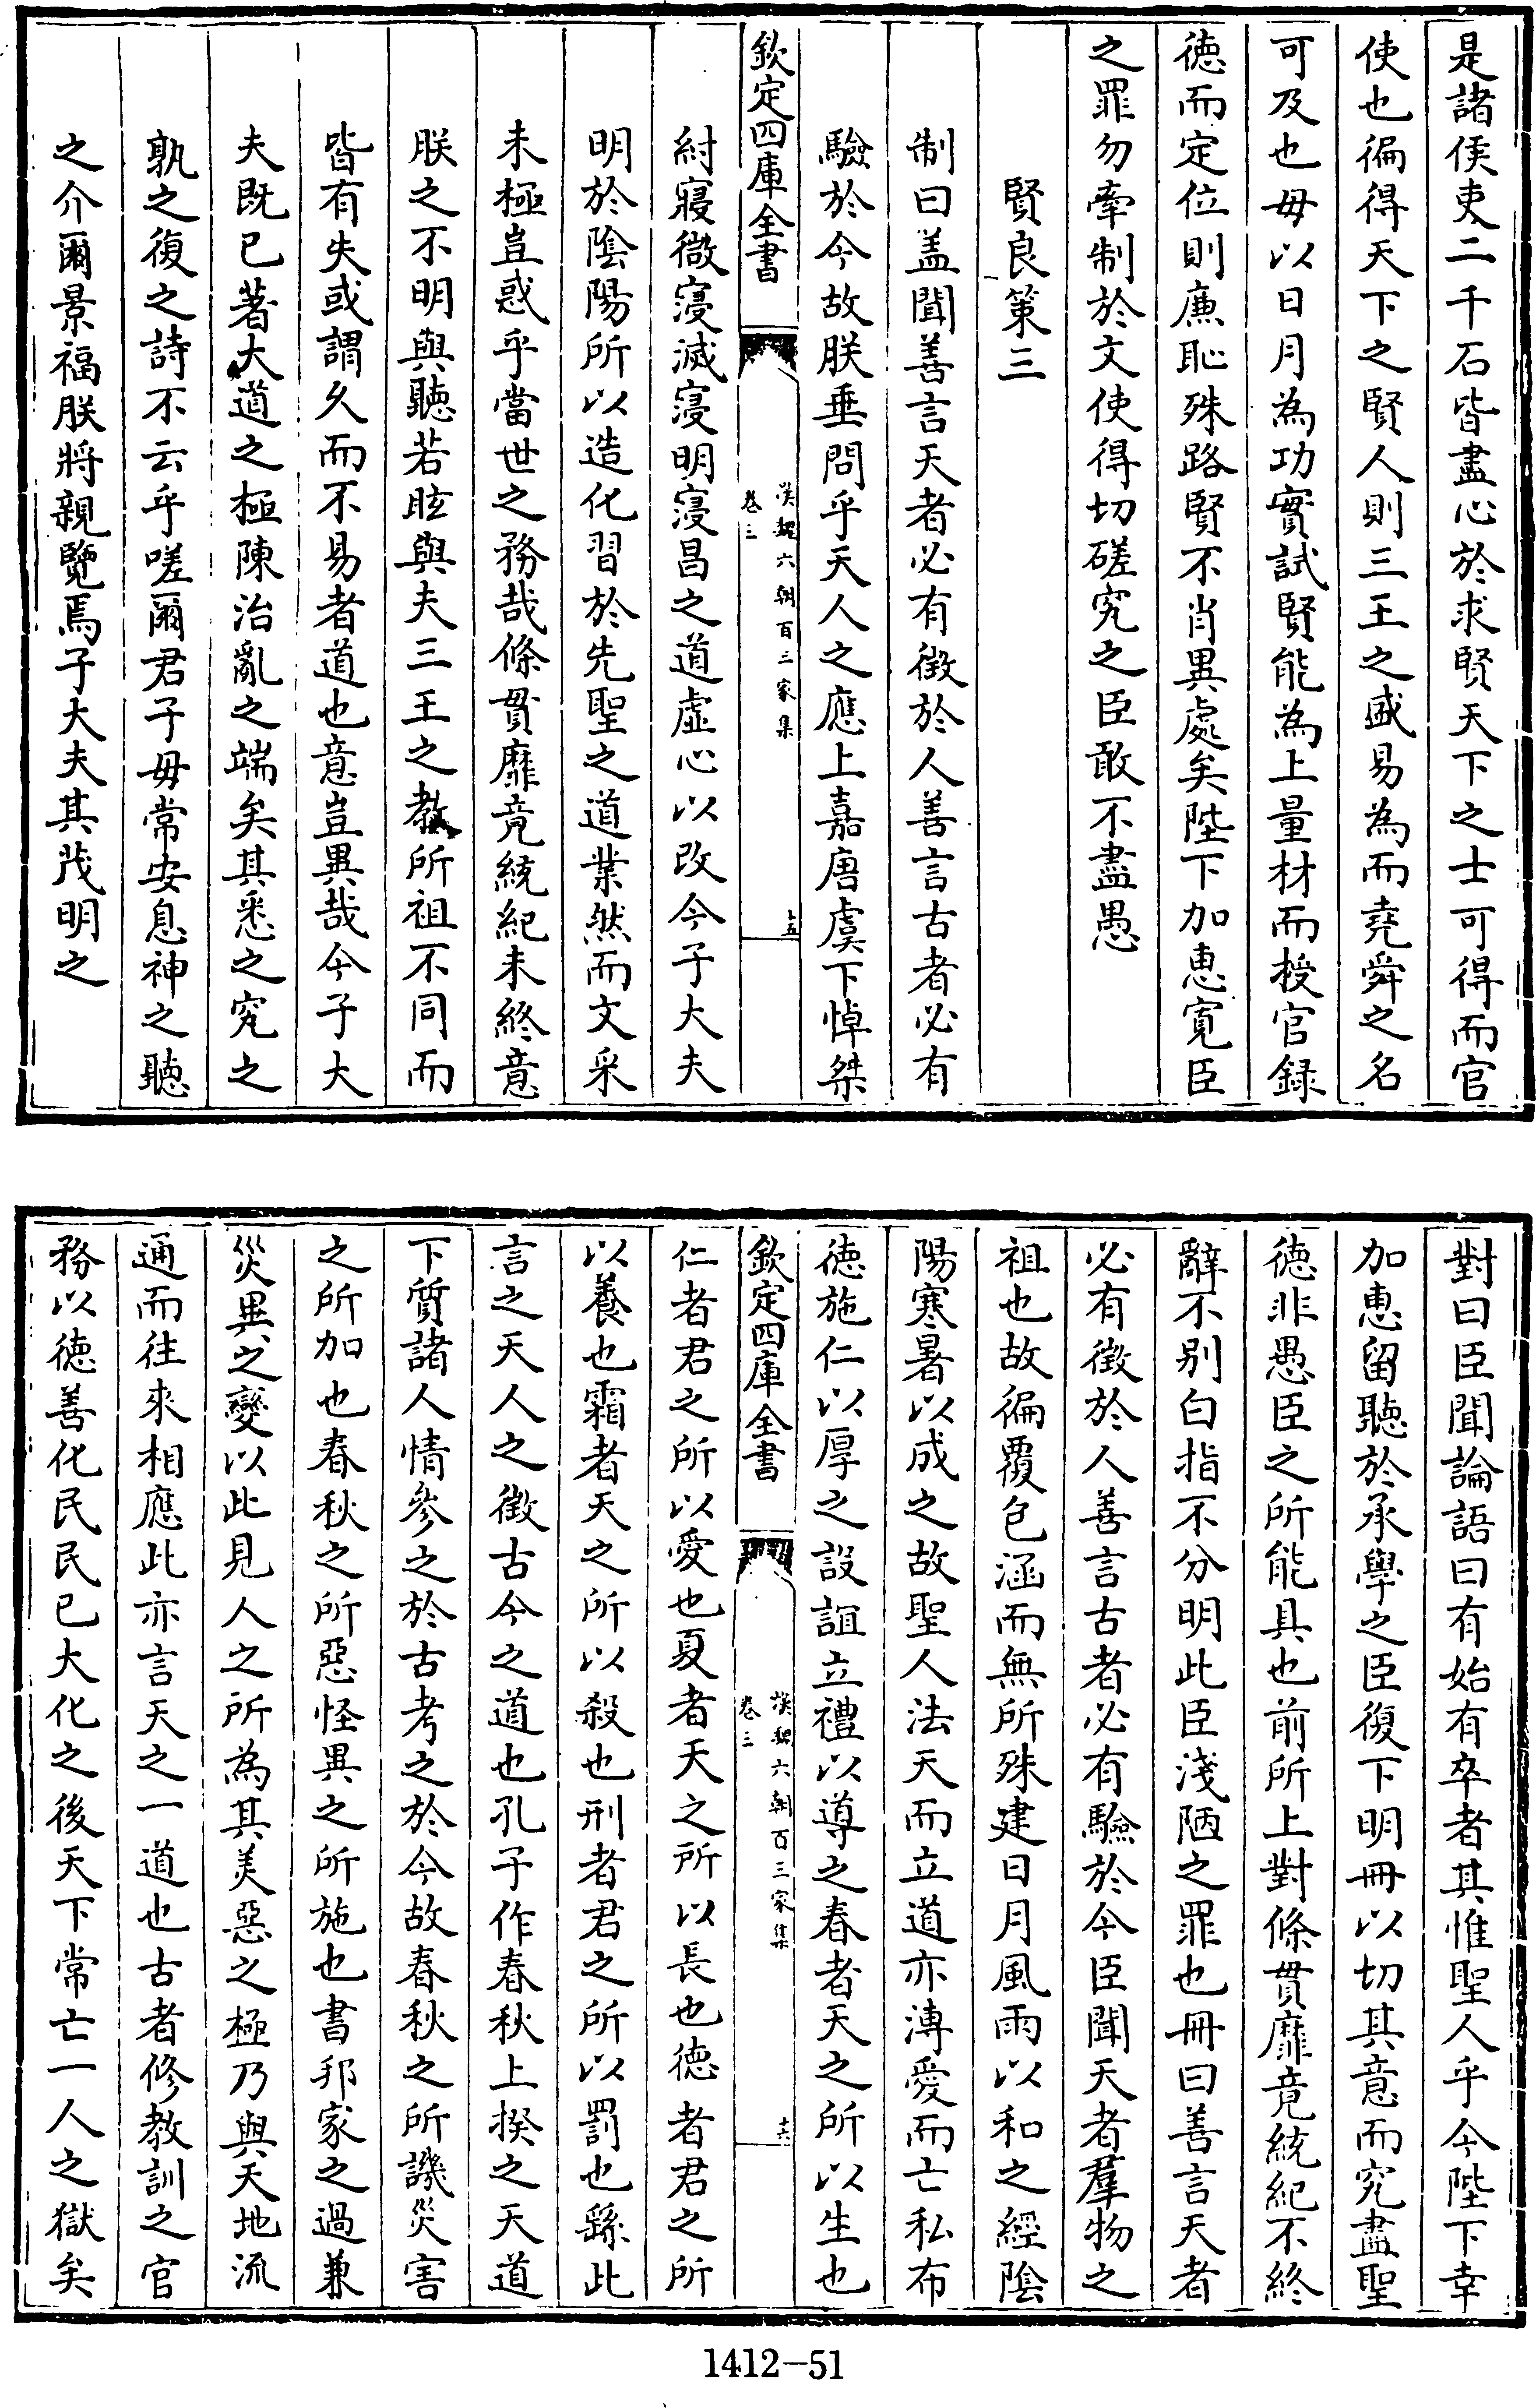 是諸侯吏二千石皆盡心於求賢天下之士可得而官
使也徧得天下之賢人則三王之盛易為而堯舜之名
可及也毋以日月為功實試賢能為上量材而授官録
徳而定位則廉恥殊路賢不肖異處矣陛下加恵寛臣
之罪勿牽制於文使得切磋究之臣敢不盡愚
賢良策三
制曰盖聞善言天者必有徴於人善言古者必有
驗於今故朕垂問乎天人之應上嘉唐虞下悼桀
欽定四庫全書
漢魏六朝百三家集
卷三
十五
紂寖微寖滅寖明寖昌之道虚心以改今子大夫
明於陰陽所以造化習於先聖之道業然而文采
未極豈惑乎當世之務哉條貫靡竟統紀未終意
朕之不明與聽若眩與夫三王之教所祖不同而
皆有失或謂久而不易者道也意豈異哉今子大
夫既已著大道之極陳治亂之端矣其悉之究之
孰之復之詩不云乎嗟爾君子毋常安息神之聽
之介爾景福朕將親覽焉子大夫其茂明之
對曰臣聞論語曰有始有卒者其惟聖人乎今陛下幸
加恵留聽於承學之臣復下明冊以切其意而究盡聖
徳非愚臣之所能具也前所上對條貫靡竟統紀不終
辭不别白指不分明此臣淺陋之罪也冊曰善言天者
必有徴於人善言古者必有驗於今臣聞天者羣物之
祖也故徧覆包涵而無所殊建日月風雨以和之經陰
陽寒暑以成之故聖人法天而立道亦溥愛而亡私布
徳施仁以厚之設誼立禮以導之春者天之所以生也
欽定四庫全書
漢魏六朝百三家集
卷三
十六
仁者君之所以愛也夏者天之所以長也徳者君之所
以養也霜者天之所以殺也刑者君之所以罰也繇此
言之天人之徴古今之道也孔子作春秋上揆之天道
下質諸人情參之於古考之於今故春秋之所譏災害
之所加也春秋之所惡怪異之所施也書邦家之過兼
災異之變以此見人之所為其美惡之極乃與天地流
通而往來相應此亦言天之一道也古者修教訓之官
務以徳善化民民已大化之後天下常亡一人之獄矣
1412-51